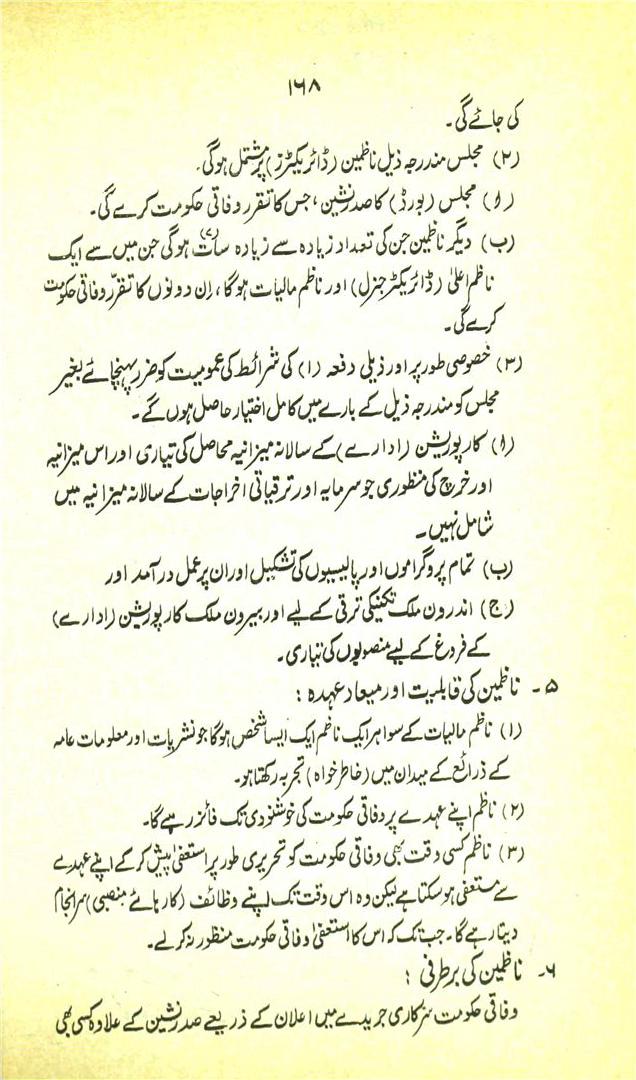 ۱۶۸
کی جائے گی۔
(۲) مجلس مندرجہ ذیل ناظمین (ڈائریکٹرز) پر مشتمل ہوگی۔
(ا) مجلس (بورڈ) کا صدر نشین، جس کا تقرر وفاقی حکومت کرے گی۔
(ب) دیگر ناظمین جن کی تعداد زیادہ سے زیادہ سات (۷) ہوگی جن میں سے ایک
ناظم اعلیٰ (ڈائریکٹر جنرل) اور ناظم مالیات ہوگا، اِن دونوں کا تقرّر وفاقی حکومت
کرے گی۔
(۳) خصوصی طور پر اور ذیلی دفعہ (۱) کی شرائط کی عمومیت کو ضرر پہنچائے بغیر
مجلس کو مندرجہ ذیل کے بارے میں کامل اختیار حاصل ہوں گے۔
(ا) کارپوریشن (ادارے) کے سالانہ میزانیہ محاصل کی تیاری اور اس میزانیہ
اور خرچ کی منظوری جو سرمایہ اور ترقیاتی اخراجات کے سالانہ میزانیہ میں
شامل نہیں۔
(ب) تمام پروگراموں اور پالیسیوں کی تشکیل اور ان پر عمل درآمد اور
(ج) اندرون ملک تکنیکی ترقی کے لیے اور بیرون ملک کارپوریشن (ادارے)
کے فروغ کے لیے منصوبوں کی تیاری۔
۵۔ ناظمین کی قابلیت اور میعاد عہدہ :
(۱) ناظم مالیات کے سوا ہر ایک ناظم ایک ایسا شخص ہوگا جو نشریات اور معلومات عامہ
کے ذرائع کے میدان میں (خاطر خواہ) تجربہ رکھتا ہو۔
(۲) ناظم اپنے عہدے پر وفاقی حکومت کی خوشنودی تک فائز رہے گا۔
(۳) ناظم کسی وقت بھی وفاقی حکومت کو تحریری طور پر استعفیٰ پیش کر کے اپنے عہدے
سے مستعفی ہو سکتا ہے لیکن وہ اس وقت تک اپنے وظائف (کار ہائے منصبی) سر انجام
دیتا رہے گا۔ جب تک کہ اس کا استعفیٰ وفاقی حکومت منظور نہ کر لے۔
۶۔ ناظمین کی برطرفی :
وفاقی حکومت سرکاری جریدے میں اعلان کے ذریعے صدر نشین کے علاوہ کسی بھی